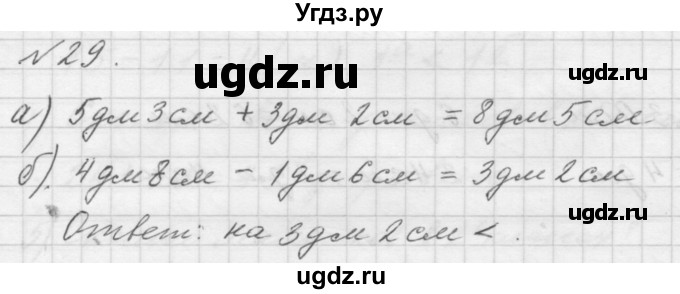 Угдз.ру
№29.
ugdz.ru
а) 5дм 3см + 3дм 2см = 8дм 5см
ugdz.ru
б). 4дм 8см - 1дм 6см = 3дм 2см
Ответ: на 3дм 2см < .
ugdz.ru
ugdz.ru